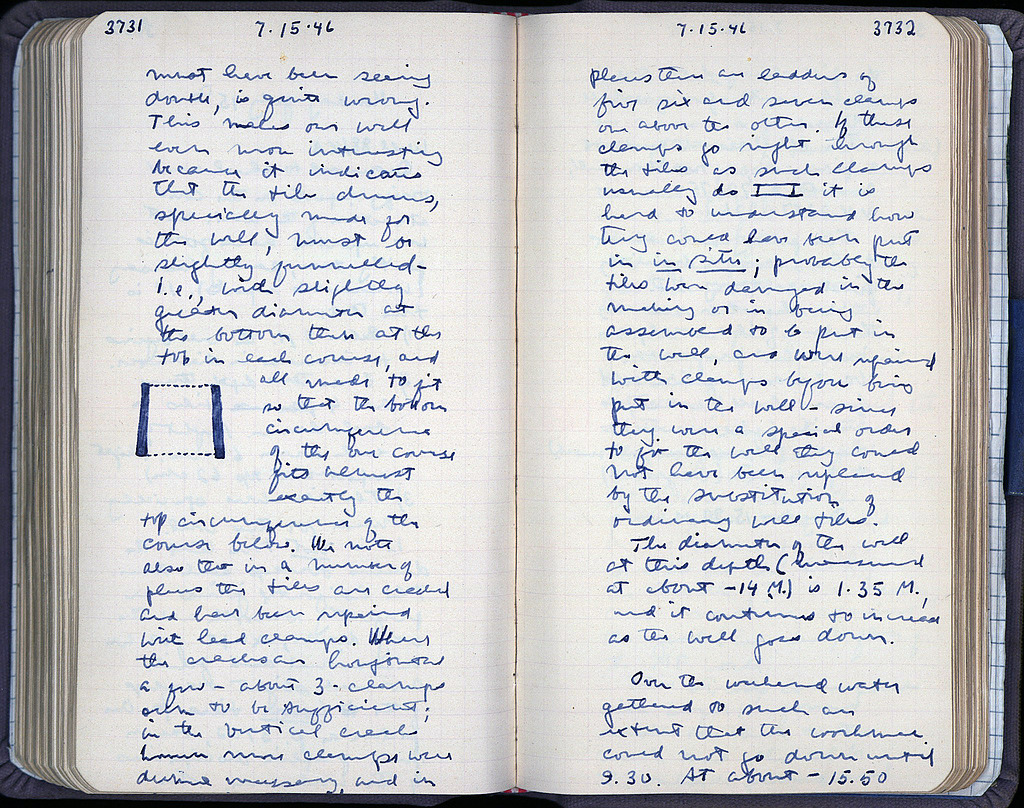 3731 7.15.46
must have been seeing
double, is quite wrong.
This makes our well
even more interesting
because it indicates
that the tile drums,
specially made for
the well, must be
slightly funnelled -
i.e., with slightly
greater diameter at
the bottom than at the
top in each course, and
all made to fit
so that the bottom
circumference
of the one course
fits almost
exactly the
top circumference of the
course below. We note
also that in a number of
places the tiles are cracked
and have been repaired
with lead clamps. Where
the cracks are horizontal
a few - about 3 - clamps
seem to be sufficient;
in the vertical cracks
however more clamps were
deemed necessary, and in
7.15.46 3732
places there are ladders of
five six and seven clamps
one above the other. If these
clamps go right through
the tiles as such clamps
usually do it is
hard to understand how
they could have been put
in in situ; probably the
tiles were damaged in the
making or in being
assembled to be put in
the well, and were repaired
with clamps before being
put in the well - since
they were a special order
to for the well they could
not have been replaced
by the substitution of
ordinary well tiles.
The diameter of the well
at this depth (measured
at about -14 M.) is 1.35 M.,
and it continues to increase
as the well goes down.
Over the weekend water
gathered to such an
extent that the workmen
could not go down until
9.30. At about -15.50